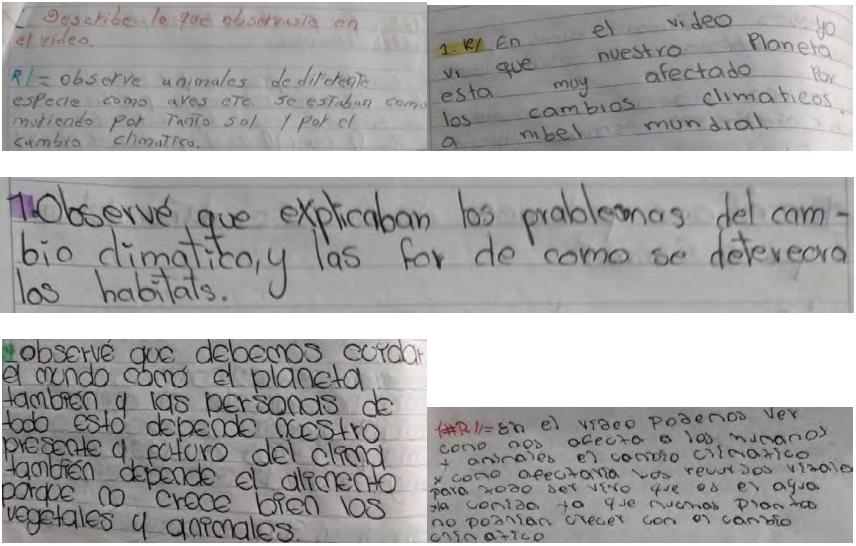 Describe lo que observaste en
el video.
R/= observe animales de diferente
especie como aves etc se estaban como
muriendo por tanto sol y por el
cambio climatico.
1. R/ En el video yo
vi que nuestro Planeta
esta muy afectado por
los cambios climaticos
a nibel mundial.
1. Observé que explicaban los problemas del cam-
bio climatico, y las for de como se detereora
los habitats.
1 observé que debemos cuidar
el mundo como el planeta
también y las personas de
todo esto depende nuestro
presente y futuro del clima
también depende el alimento
porque no crece bien los
vegetales y animales.
1#R//= En el video podemos ver
como nos afecta a los humanos
y animales el cambio climatico
y como afectaria los recursos vitales
para todo ser vivo que es el agua
la comida ya que muchas plantas
no podrian crecer con el cambio
climatico